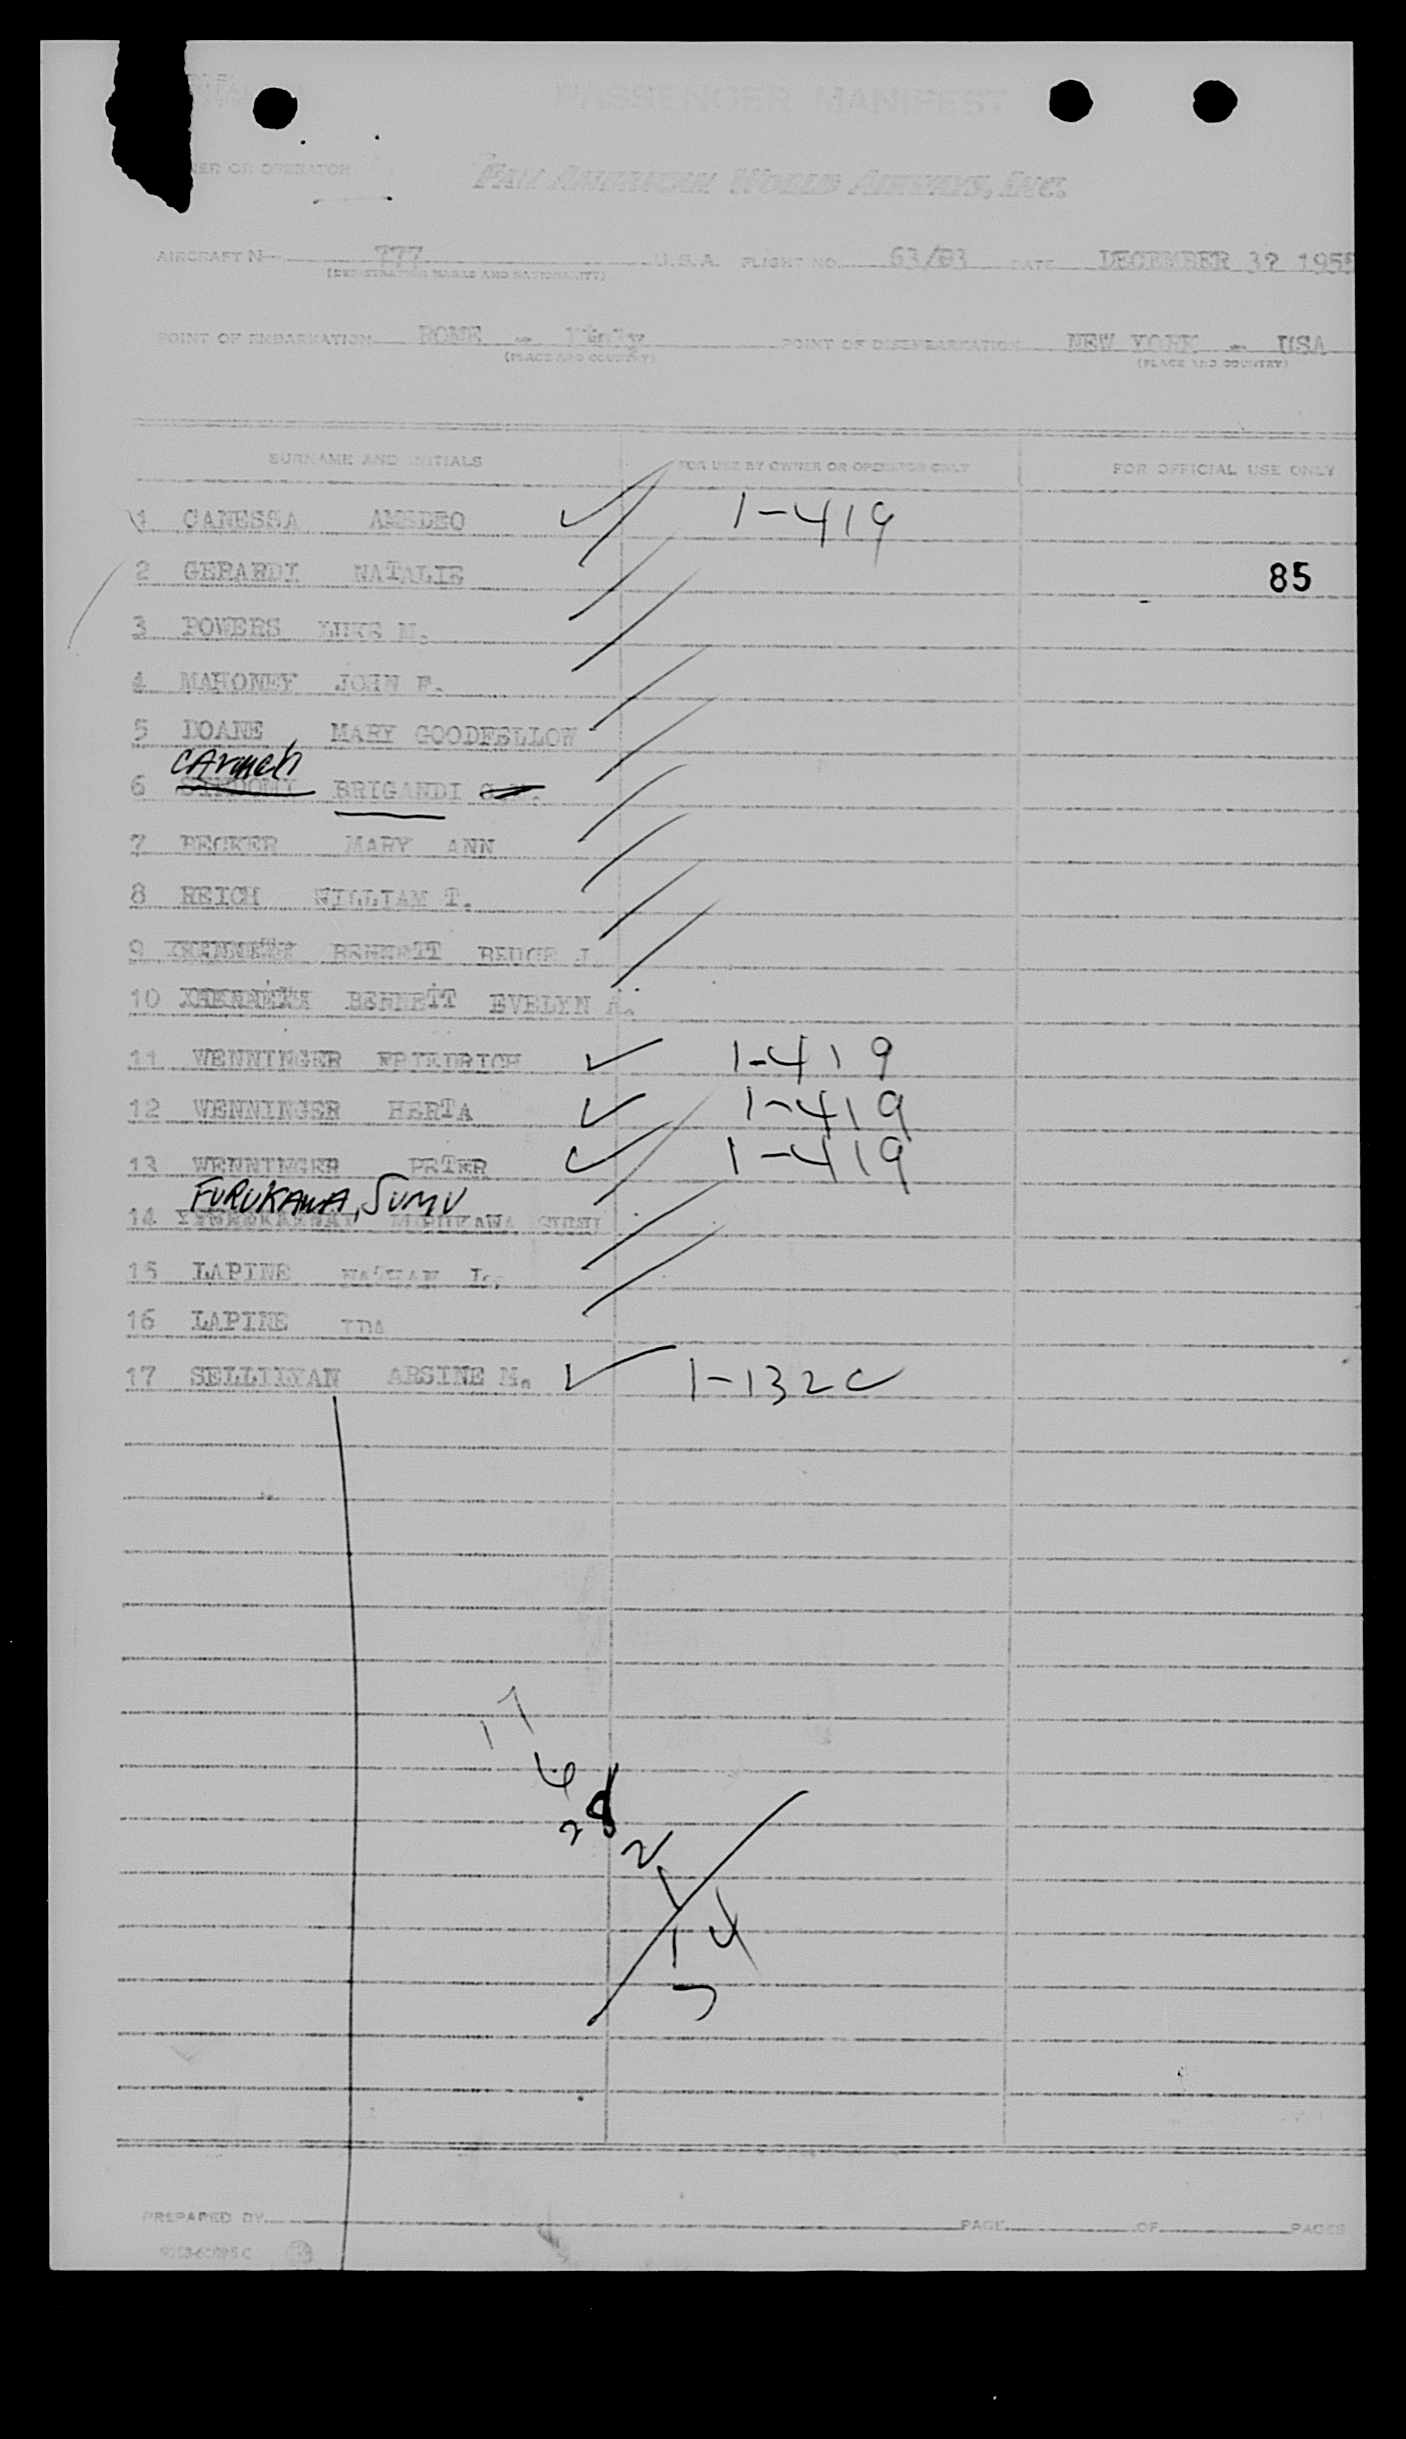 PASSENGER MANIFEST
OWNER OR OPERATOR
PAN AMERICAN WORLD AIRWAYS, INC.
AIRCRAFT N 777 U.S.A. FLIGHT NO. 63/ DATE DECEMBER 1955
(REGISTRATION MARKS AND NATIONALITY)
POINT OF EMBARKATION ROME - Italy POINT OF DISEMBARKATION NEW YORK - USA
(PLACE AND COUNTRY) (PLACE AND COUNTRY)
SURNAME AND INITIALS FOR USE BY OWNER OR OPERATOR ONLY FOR OFFICIAL USE ONLY
1 CANESSA AMADEO 1-419
2 GERARDI NATALIE 85
3 POWERS LUKE M.
4 MAHONEY JOHN F.
5 DOANE MARY GOODFELLOW
CArmeh
6 BRIGANDI
7 BECKER MARY ANN
8 REICH WILLIAM T.
9 BENNETT J
10 BENNETT EVELYN A.
11 WENNINGER FRIEDRICH 1-419
12 WENNINGER HERTA 1-419
13 WENNINGER PETER 1-419
FURUKAWA, SUMU
14
15 LAPINE NATHAN L.
16 LAPINE IDA
17 ARSINE M. 1-132C
17
6
2 8
2
1
14
PREPARED BY PAGE OF PAGES